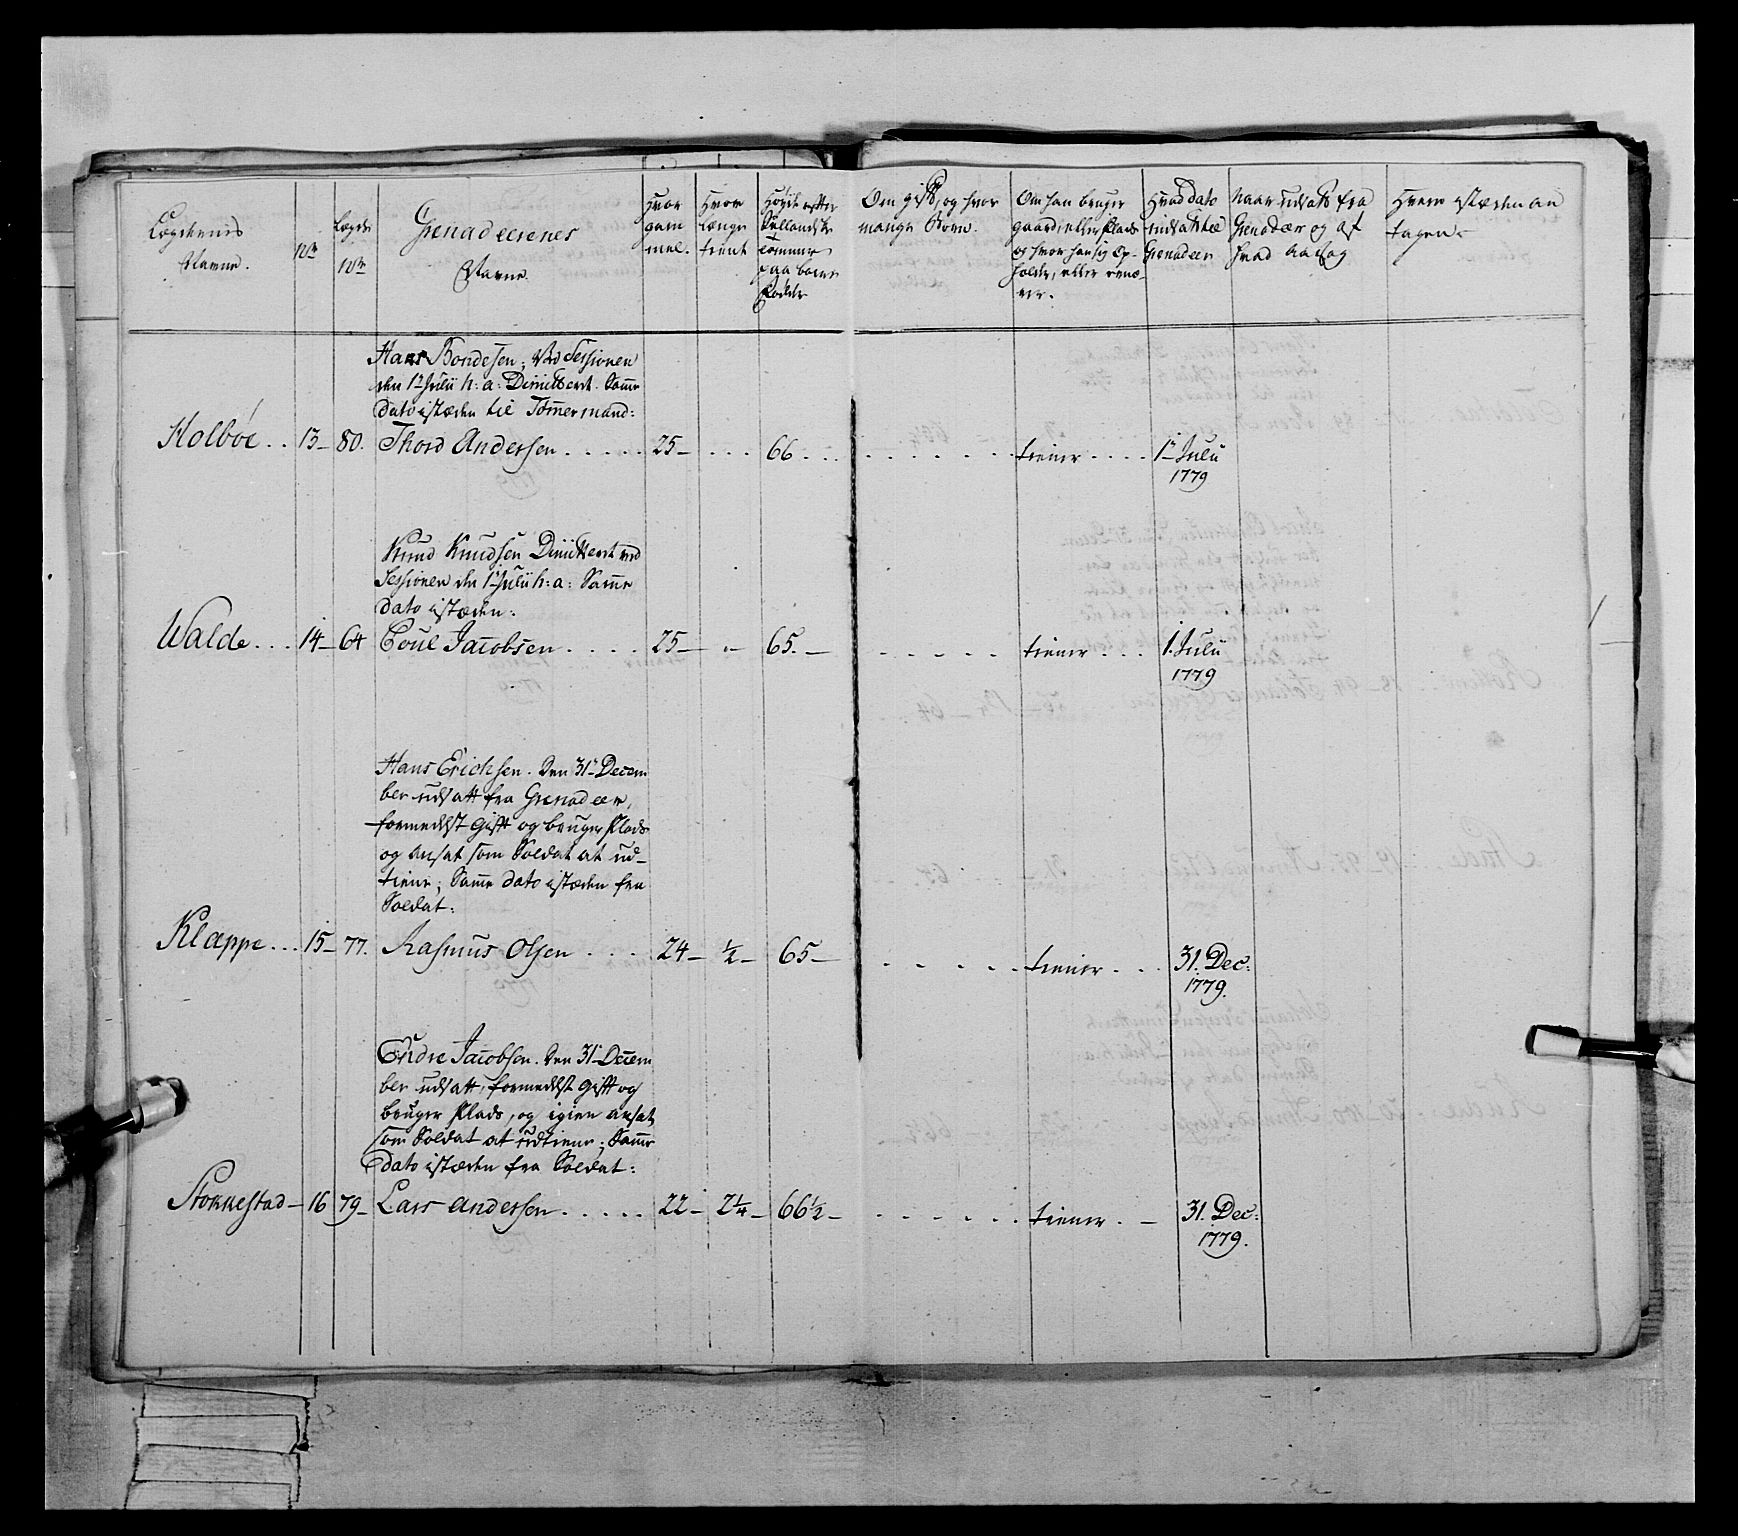 Lægdenes
Navne.
No
Lægds
No
Grenadeerenes
Navne
Hvor
gam
mel.
Hvor
længe
tient
Høyde efter
Siellandske
tommer
paa bare
Fødder
Om gift, og hvor
mange Børn.
Om han bruger
gaard, eller Plads
og hvor han sig op-
holder, eller tiene-
rer.
Hvad dato
indsat til
Grenadeer
Naar udsatt fra
Grenadeer og af
hvad Aarsag
Hvem istæden an
tagen.
Hans Bondesen; Ved Sessionen
den 1te Julii h: a: Dimittert. Samme
Dato istæden til Tømmermand:
Kolbøe .. 13 – 80. Thord Andersen ..... 25 – ... 66 ... ...... tiener .... 1te Julii
1779
Knud Knudsen Dimittert ved
Sessionen den 1te Julii h: a: Samme
Dato istæden:
Walde ... 14 – 64 Poul Jacobsen .... 25 – .. 65. – ..... tiener ... 1. Julii
1779
Hans Erichsen. Den 31te Decem
ber udsatt fra Grenadeer,
formedelst gift og bruger Plads
og ansat som Soldat at ud-
tiene; Samme Dato istæden fra
Soldat:
Klappe ... 15 – 77. Rasmus Olsen .... 24 – ½ – 65 – ..... tiener ... 31. Dec:
1779.
Endre Jacobsen. Den 31te Decem
ber udsatt, formedelst gift og
bruger Plads, og igien ansat
som Soldat at udtiene; Samme
Dato istæden fra Soldat:
Stokkestad – 16 79 – Lars Andersen ..... 22 – 2¼ – 66½ – ...... tiener . – 31. Dec:
1779.